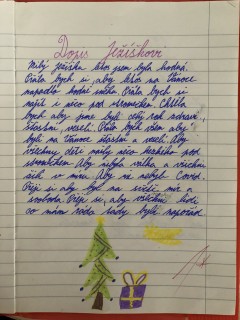 Dopis Ježíškovi
Milý ježíšku letos jsem byla hodná.
Přála bych si, aby letos na Vánoce
napadlo hodně sněhu. Přála bych si
najít i něco pod stromečkem. Chtěla
bych aby jsme byli celý rok zdraví,
šťastní, veselí. Přála bych všem aby
byli na Vánoce šťastní a veselí. Aby
všechny děti našly něco hezkého pod
stromečkem. Aby nebyla válka a všichni
žili v míru. Aby né nebyl Covid.
Přeji si aby byl na světě mír a
svoboda. Přeji si, aby všichni lidi
co mám ráda tady byli napořád.